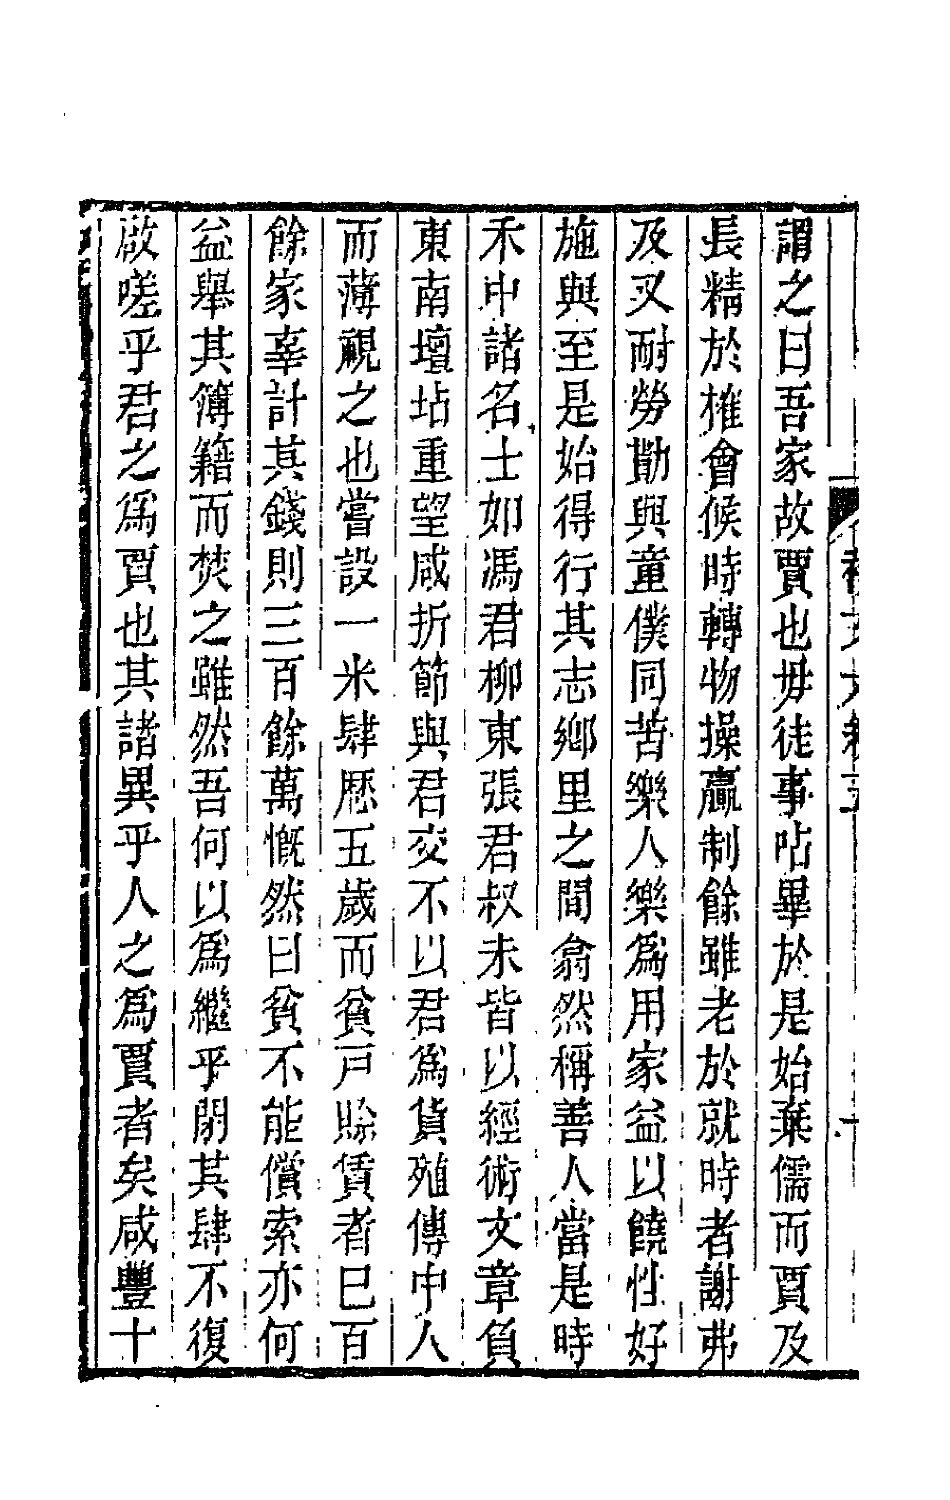 謂之曰吾家故賈也毋徒事呫畢於是始棄儒而賈及
長精於榷會候時轉物操贏制餘雖老於就時者謝弗
及又耐勞勩與童僕同苦樂人樂爲用家益以饒性好
施與至是始得行其志鄉里之間翕然稱善人當是時
禾中諸名士如馮君柳東張君叔未皆以經術文章負
東南壇坫重望咸折節與君交不以君爲貨殖傳中人
而薄視之也嘗設一米肆歷五歲而貧戸賒賃者巳百
餘家辜計其錢則三百餘萬慨然曰貧不能償索亦何
益舉其簿籍而焚之雖然吾何以爲繼乎閉其肆不復
啟嗟乎君之爲賈也其諸異乎人之爲賈者矣咸豐十